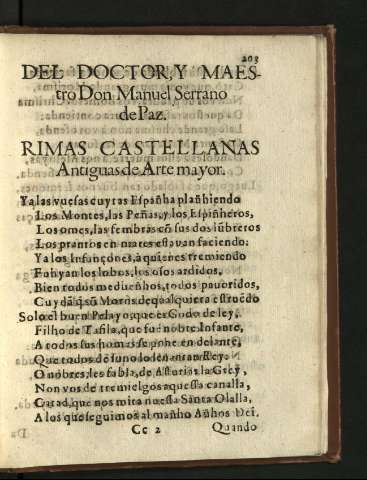 203
DEL DOCTOR, Y MAES-
tro Don Manuel Serrano
de Paz.
RIMAS CASTELLANAS
Antiguas de Arte mayor.
Ya las vuesas cuytas Espanha planhiendo
Los Montes, las Peñas, y los Espinheros,
Los omes, las fembras cõ sus dos lũbreros
Los prantos en mares estavan faciendo:
Ya los Infançones, à quienes tremiendo
Fohyan los lobos, los osos ardidos,
Bien todos todos pavoridos,
Cuydã q̃ sõ Moros deqoalquiera estruẽdo
Solo el buen Pelayo, que es Godo de ley,
Filho de Tafila, que fue nobre Infante,
A todos sus homes se pone en delante,
Que todos de funo lo Rey.
O nobres, les fabla, de Asturias la Grey,
Non vos de tremielgos aquessa canalla,
Catad, que nos mira nuessa Santa Olalla,
A los que seguimos al manho Anhos Dei.
Cc 2 Quando